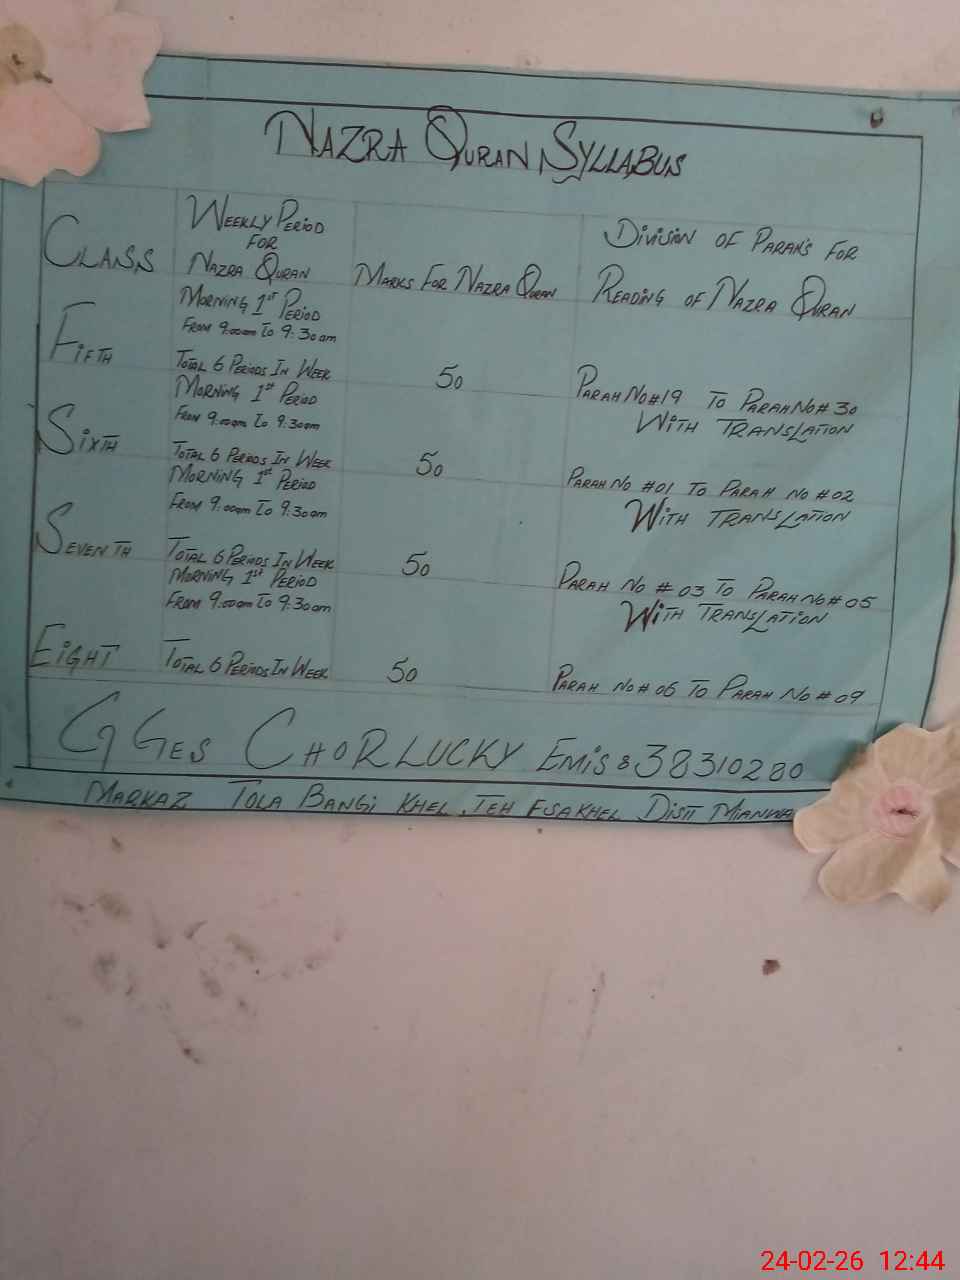 NAZRA QURAN SYLLABUS
CLASS
WEEKLY PERIOD
FOR
NAZRA QURAN
MARKS FOR NAZRA QURAN
DIVISION OF PARAH'S FOR
READING OF NAZRA QURAN
FIFTH
MORNING 1st PERIOD
FROM 9:00am TO 9:30am
TOTAL 6 PERIODS IN WEEK
50
PARAH NO#19 TO PARAH NO# 30
SIXTH
MORNING 1st PERIOD
FROM 9:00am TO 9:30am
TOTAL 6 PERIODS IN WEEK
50
WITH TRANSLATION
PARAH NO #01 TO PARAH NO #02
SEVENTH
MORNING 1st PERIOD
FROM 9:00am TO 9:30am
TOTAL 6 PERIODS IN WEEK
50
WITH TRANSLATION
PARAH NO #03 TO PARAH NO# 05
EIGHT
MORNING 1st PERIOD
FROM 9:00am TO 9:30am
TOTAL 6 PERIODS IN WEEK
50
WITH TRANSLATION
PARAH NO# 06 TO PARAH NO# 09
GGES CHOR LUCKY EMIS 8 38310280
MARKAZ TOLA BANGI KHEL, TEH ESAKHEL DISTT
24-02-26 12:44